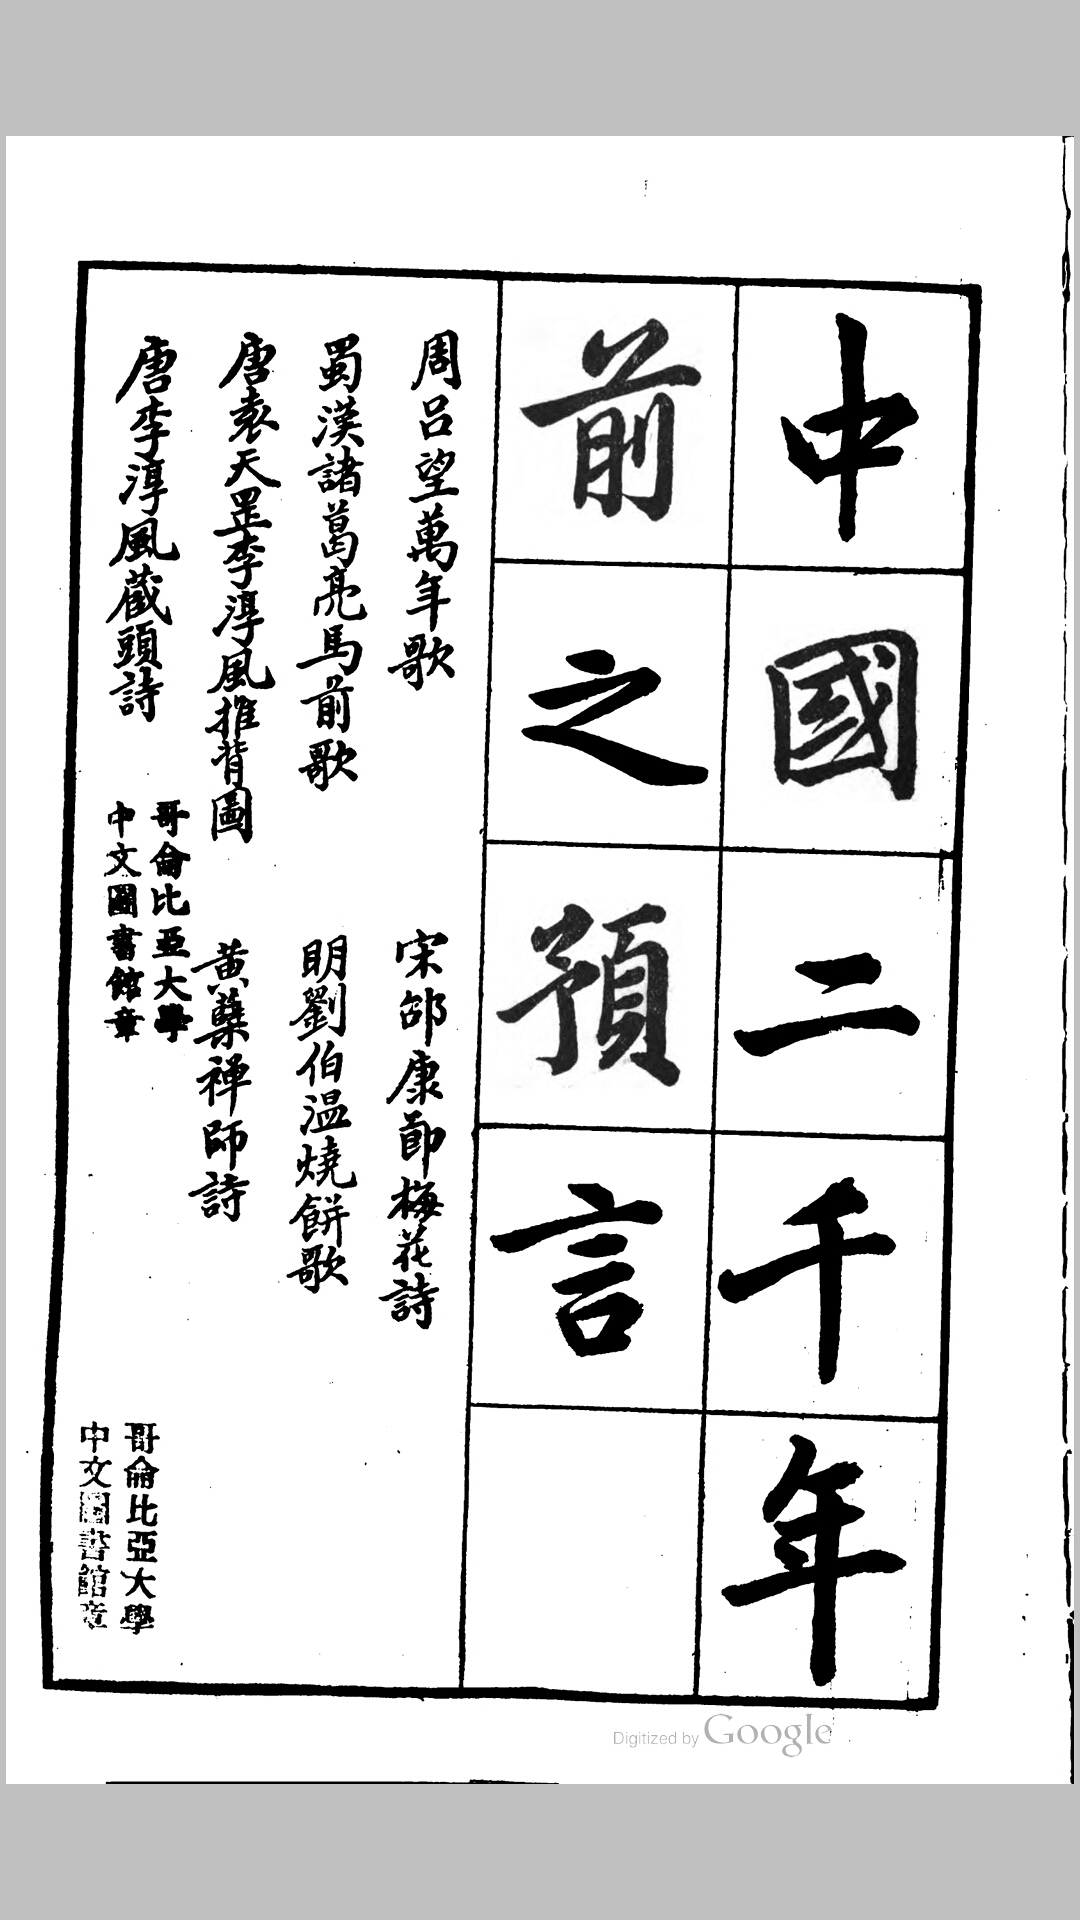 中國二千年
前之預言
周呂望萬年歌
宋邵康節梅花詩
蜀漢諸葛亮馬前歌
明劉伯温燒餅歌
唐袁天罡李淳風推背圖
黃蘗禅師詩
唐李淳風蔵頭詩
哥倫比亞大學
中文圖書館章
哥倫比亞大學
中文圖書館章
Digitized by Google